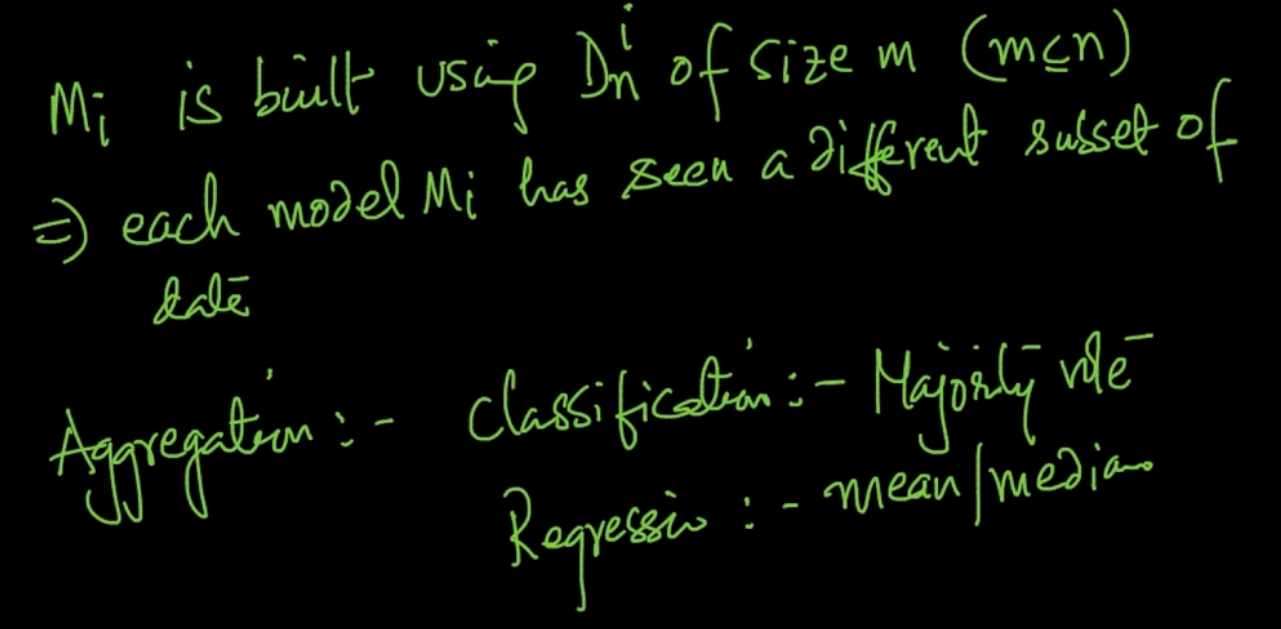 Mi is built using Dn^i of size m (m≤n)
⇒ each model Mi has seen a different subset of
data
Aggregation :- Classification :- Majority vote
Regression :- mean/median